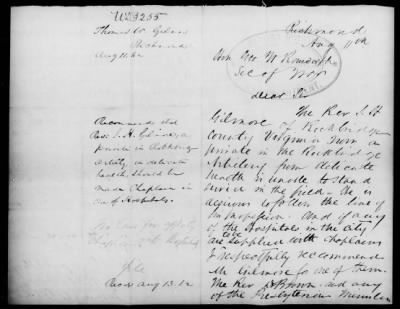 Thomas W. Gilmer
Richmond
Aug 11. 62
Recommends that
Rev. J. H. Gilmore, a
private in Rockbridge
Artillery, in delicate
health, should be
made Chaplain in
one of Hospitals.
File
Aug 13. 62
Richmond
Aug 11th
Hon Geo W Randolph
Sec of War
Dear Sir
The Rev J H
Gilmore of Rockbridge
County Virginia now a
private in the Rockbridge
Artillery from delicate
health is unable to stand
service in the field. He is
anxious to follow the line of
his profession. And if any
of the Hospitals in the City
are to be supplied with chaplains
I respectfully recommend
Mr Gilmore for one of them.
The Rev Brown and any
of the Presbyterian Ministers